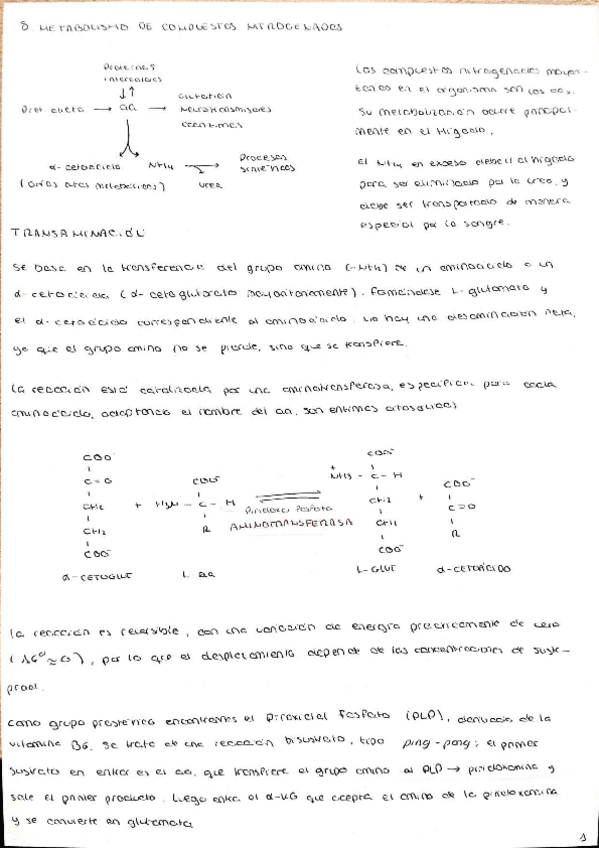 8. METABOLISMO DE COMPUESTOS NITROGENADOS
Proteínas
intracelulares
Prot dieta → aa → Glutation
Neurotransmisores
coenzimas
α-cetoácido NH4 → Procesos
sintéticos
(otras rutas metabólicas) urea
Los compuestos nitrogenados mayori-
tarios en el organismo son los aa.
Su metabolización ocurre principal-
mente en el Hígado.
El NH4 en exceso deberá al hígado
para ser eliminado por la urea, y
debe ser transportado de manera
especial por la sangre.
TRANSAMINACIÓN
Se basa en la transferencia del grupo amino (-NH4) de un aminoácido a un
α-cetoácido (α-cetoglutarato mayoritariamente), formándose L-glutamato y
el α-cetoácido correspondiente al aminoácido. No hay una desaminación neta,
ya que el grupo amino no se pierde, sino que se transfiere.
La reacción está catalizada por una aminotransferasa, específica para cada
aminoácido, adoptando el nombre del aa. Son enzimas citosólicas
COO⁻ COO⁻
C=O COO⁻ NH3⁺ - C - H COO⁻
CH2 + H3N - C - H ⇌ CH2 + C=O
CH2 R Piridoxal fosfato CH2 R
COO⁻ AMINOTRANSFERASA COO⁻
α-CETOGLUT L aa L-GLUT α-CETOÁCIDO
La reacción es reversible, con una variación de energía prácticamente de cero
(ΔG⁰ ≈ 0), por lo que el desplazamiento depende de las concentraciones de sust-
prod.
Como grupo prostético encontramos el Piroxidal Fosfato (PLP), derivado de la
vitamina B6. Se trata de una reacción bisustrato, tipo ping-pong; el primer
sustrato en entrar es el aa, que transfiere el grupo amino al PLP → piridoxamina y
sale el primer producto. Luego entra el α-KG que acepta el amino de la piridoxamina
y se convierte en glutamato
1